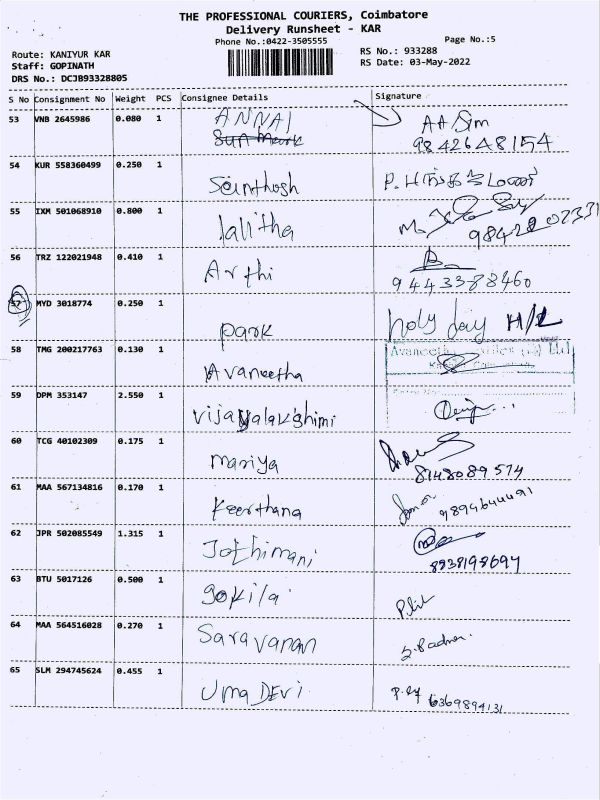 THE PROFESSIONAL COURIERS, Coimbatore
Delivery Runsheet - KAR
Phone No.:0422-3505555
Page No.:5
Route: KANIYUR KAR
Staff: GOPINATH
DRS No.: DCJB93328805
RS No.: 933288
RS Date: 03-May-2022
S No Consignment No Weight PCS Consignee Details Signature
53 VNB 2645986 0.080 1 ANNAI AA Sim
Sun Mark 9842648154
54 KUR 558360499 0.250 1
Sainthosh P.
55 IXM 501068910 0.800 1
lalitha M.
56 TRZ 122021948 0.410 1
Arthi 9443388460
57 MYD 3018774 0.250 1
park holy day H/L
58 TMG 200217763 0.130 1
Avaneetha
59 DPM 353147 2.550 1
vijayalakshimi
60 TCG 40102309 0.175 1
mariya 8148089574
61 MAA 567134816 0.170 1
Keerthana 9894644491
62 JPR 502085549 1.315 1
Jothimani 8838198694
63 BTU 5017126 0.500 1
gokila
64 MAA 564516028 0.270 1
Saravanan
65 SLM 294745624 0.455 1
Uma DEvi 6369894131